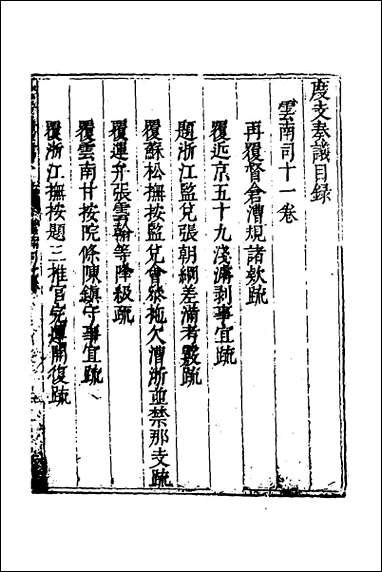 度支奏議目録
雲南司十一卷
再覆督倉漕規諸欵疏
覆近京五十九淺濬剥事宜疏
題浙江監兌張朝綱差滿考覈疏
覆蘇松撫按監兌會叅拖欠漕浙並禁那支疏
覆運弁張雲翰等降級疏
覆雲南甘按院條陳鎮守事宜疏
覆浙江撫按題三推官完運開復疏